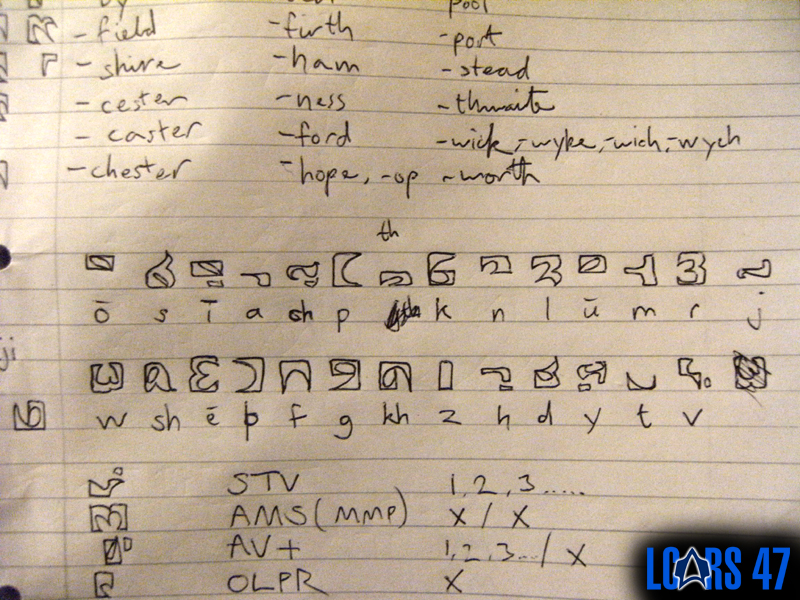 pool
-field -firth -port
-shire -ham -stead
-cester -ness -thwaite
-caster -ford -wick, -wyke, -wich, -wych
-chester -hope, -op -worth
th
ō s ī a ch p k n l ū m r j
ji
w sh ē þ f g kh z h d y t v
STV 1, 2, 3.....
AMS (MMP) X / X
AV+ 1, 2, 3.../ X
OLPR X
LCARS 47